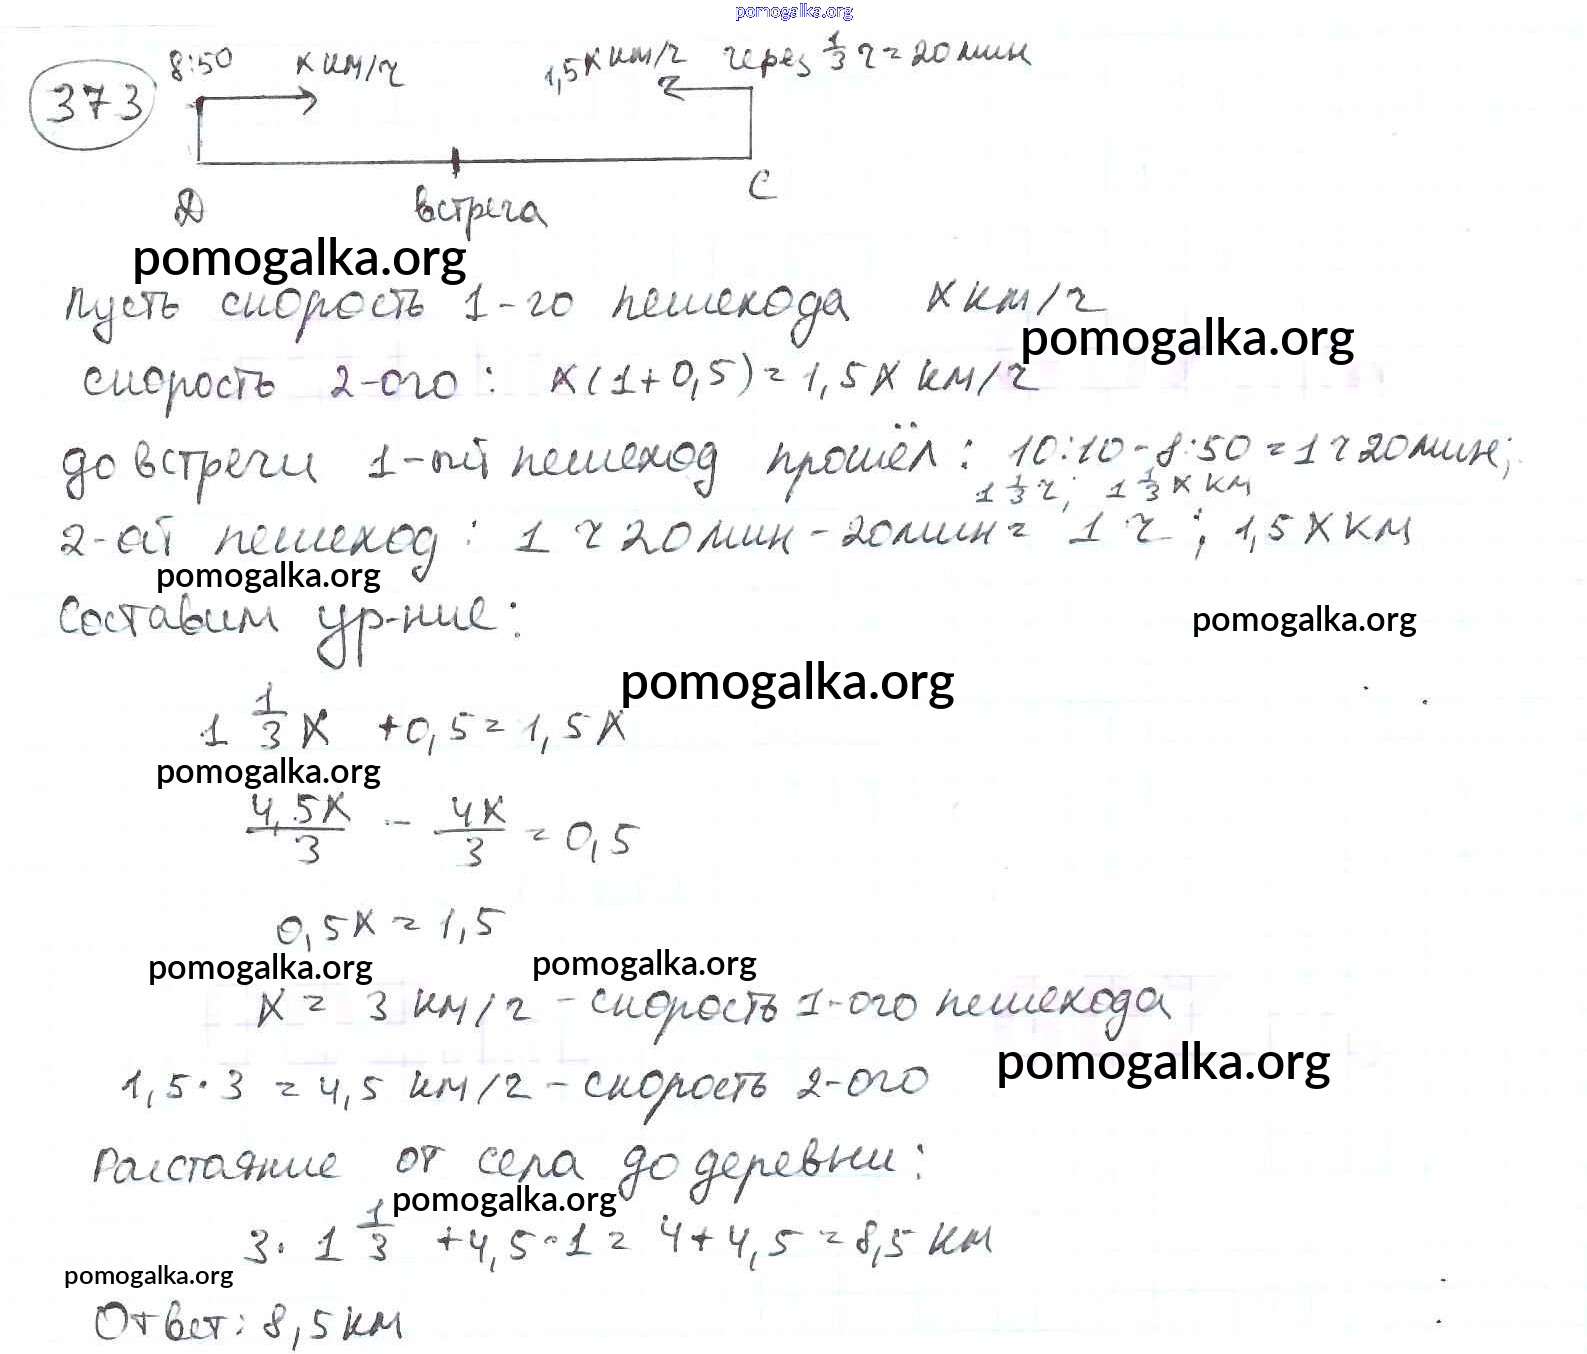 pomogalka.org
373
8:50 х км/ч 1,5х км/ч через 1/3 ч = 20 мин
Д встреча С
pomogalka.org
Пусть скорость 1-го пешехода х км/ч
pomogalka.org
скорость 2-ого: х(1+0,5) = 1,5х км/ч
до встречи 1-ый пешеход прошёл: 10:10 - 8:50 = 1 ч 20 мин;
1 1/3 ч; 1 1/3 х км
2-ой пешеход: 1 ч 20 мин - 20 мин = 1 ч; 1,5 х км
pomogalka.org
Составим ур-ние:
pomogalka.org
pomogalka.org
1 1/3 х + 0,5 = 1,5 х
pomogalka.org
4,5х/3 - 4х/3 = 0,5
0,5х = 1,5
pomogalka.org pomogalka.org
х = 3 км/ч - скорость 1-ого пешехода
pomogalka.org
1,5 · 3 = 4,5 км/ч - скорость 2-ого
Расстояние от села до деревни:
pomogalka.org
3 · 1 1/3 + 4,5 · 1 = 4 + 4,5 = 8,5 км
pomogalka.org
Ответ: 8,5 км